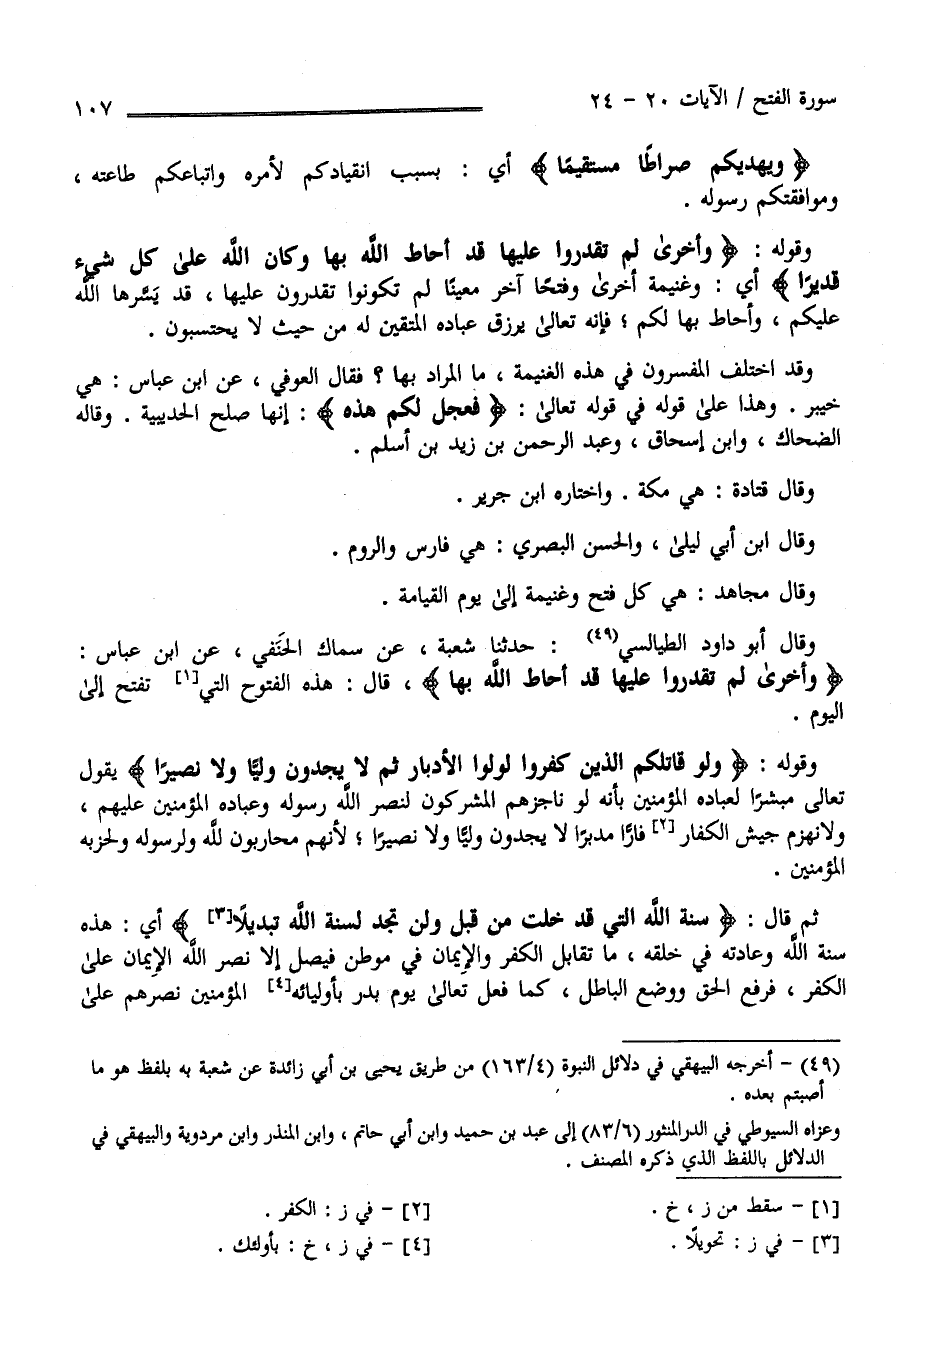 سورة الفتح / الآيات ٢٠ - ٢٤ ١٠٧
﴿ ويهديكم صراطًا مستقيمًا ﴾ أي : بسبب انقيادكم لأمره واتباعكم طاعته ،
وموافقتكم رسوله .
وقوله : ﴿ وأخرىٰ لم تقدروا عليها قد أحاط اللَّه بها وكان اللَّه علىٰ كل شيء
قديرًا ﴾ أي : وغنيمة أخرىٰ وفتحًا آخر معينًا لم تكونوا تقدرون عليها ، قد يَسَّرها اللَّه
عليكم ، وأحاط بها لكم ؛ فإنه تعالىٰ يرزق عباده المتقين له من حيث لا يحتسبون .
وقد اختلف المفسرون في هذه الغنيمة ، ما المراد بها ؟ فقال العوفي ، عن ابن عباس : هي
خيبر . وهذا علىٰ قوله في قوله تعالىٰ : ﴿ فعجل لكم هذه ﴾ : إنها صلح الحديبية . وقاله
الضحاك ، وابن إسحاق ، وعبد الرحمن بن زيد بن أسلم .
وقال قتادة : هي مكة . واختاره ابن جرير .
وقال ابن أبي ليلىٰ ، والحسن البصري : هي فارس والروم .
وقال مجاهد : هي كل فتح وغنيمة إلىٰ يوم القيامة .
وقال أبو داود الطيالسي(٤٩) : حدثنا شعبة ، عن سماك الحَنَفي ، عن ابن عباس :
﴿ وأخرىٰ لم تقدروا عليها قد أحاط اللَّه بها ﴾ ، قال : هذه الفتوح التي[١] تفتح إلىٰ
اليوم .
وقوله : ﴿ ولو قاتلكم الذين كفروا لولوا الأدبار ثم لا يجدون وليًّا ولا نصيرًا ﴾ يقول
تعالى مبشرًا لعباده المؤمنين بأنه لو ناجزهم المشركون لنصر اللَّه رسوله وعباده المؤمنين عليهم ،
ولانهزم جيش الكفار[٢] فارًّا مدبرًا لا يجدون وليًّا ولا نصيرًا ؛ لأنهم محاربون للَّه ولرسوله ولحزبه
المؤمنين .
ثم قال : ﴿ سنة اللَّه التي قد خلت من قبل ولن تجد لسنة اللَّه تبديلًا[٣] ﴾ أي : هذه
سنة اللَّه وعادته في خلقه ، ما تقابل الكفر والإيمان في موطن فيصل إلا نصر اللَّه الإيمان علىٰ
الكفر ، فرفع الحق ووضع الباطل ، كما فعل تعالىٰ يوم بدر بأوليائه[٤] المؤمنين نصرهم علىٰ
(٤٩) - أخرجه البيهقي في دلائل النبوة (١٦٣/٤) من طريق يحيى بن أبي زائدة عن شعبة به بلفظ هو ما
أصبتم بعده .
وعزاه السيوطي في الدرالمنثور (٨٣/٦) إلى عبد بن حميد وابن أبي حاتم ، وابن المنذر وابن مردوية والبيهقي في
الدلائل باللفظ الذي ذكره المصنف .
[١] - سقط من ز ، خ . [٢] - في ز : الكفر .
[٣] - في ز : تحويلًا . [٤] - في ز ، خ : بأولئك .